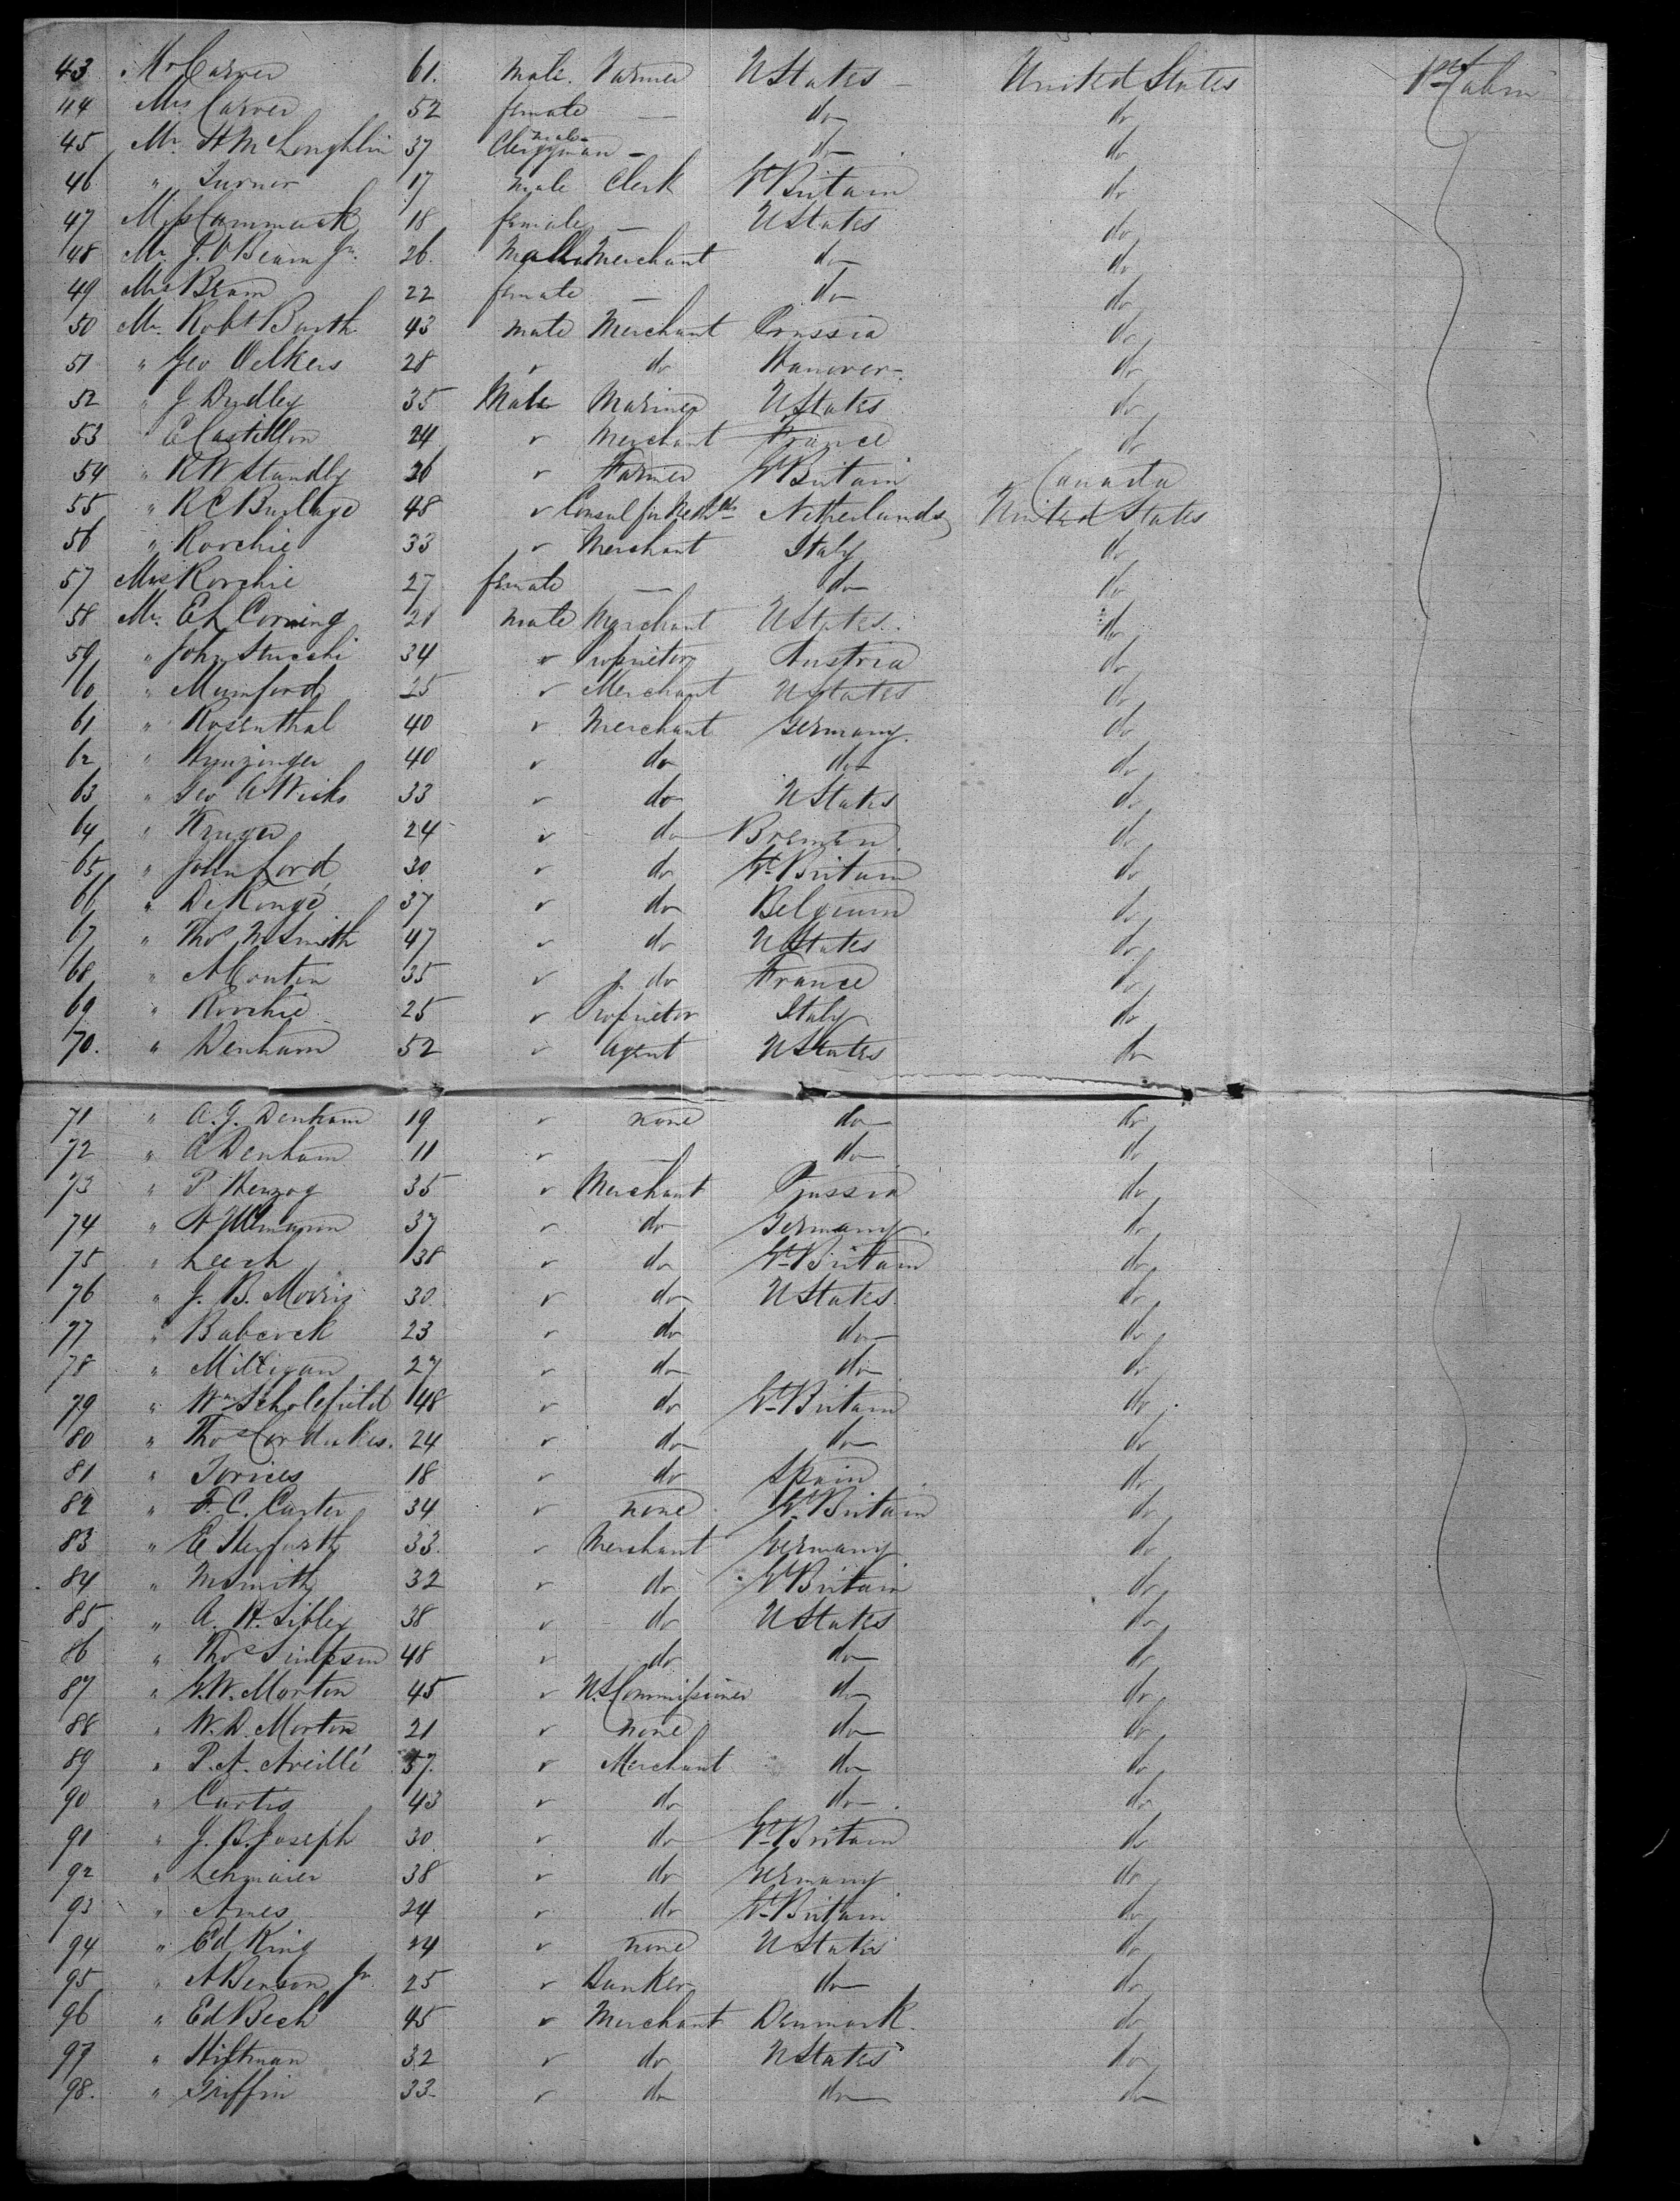 43 Mr Carver 61. male. Farmer UStates United States 1st Cabin
44 Mrs Carver 52 female — do do
45 Mr. H McLoughlin 37 male Clergyman — do do
46 " Turner 17 male Clerk Gt Britain do
47 Miss Cammack 18 female — UStates do
48 Mr. J. O Beam Jr. 26. Male Merchant do do
49 Mrs Beam 22 female — do do
50 Mr. Robt Barth 43 male Merchant Prussia do
51 " Geo Oelkers 28 " do Hanover do
52 " J Dudley 35 Male Mariner UStates do
53 " C Castillon 24 " Merchant France do
54 " R W Standly 26 " Farmer Gt Britain Canada
55 " R C Burlage 48 " Consul for Nethlds Netherlands United States
56 " Rorchie 33 " Merchant Italy do
57 Mrs Rorchie 27 female — do do
58 Mr. E L Corning 21 male Merchant UStates. do
59 " John Stucchi 34 " Proprietor Austria do
60 " Mumford 25 " Merchant UStates do
61 " Rosenthal 40 " Merchant Germany. do
62 " Hunzinger 40 " do do do
63 " Geo A Wicks 33 " do UStates do
64 " Kruger 24 " do Bremen do
65 " John Ford 30 " do Gt Britain do
66 " De Rongé 37 " do Belgium do
67 " Thos M Smith 47 " do UStates do
68 " A Contin 35 " do France do
69 " Rorchie 25 " Proprietor Italy do
70. " Denham 52 " Agent UStates do
71 " A. J. Denham 19 " none do do
72 " A Denham 11 " — do do
73 " P Herzog 35 " Merchant Prussia do
74 " A Ullmann 37 " do Germany. do
75 " Leech 38 " do Gt Britain do
76 " J. B. Morris 30 " do UStates do
77 " Babcock 23 " do do do
78 " Milligan 27 " do do do
79 " Wm Scholefield 48 " do Gt Britain do
80 " Thos Cordukes. 24 " do do do
81 " Torices 18 " do Spain do
82 " F. C. Carter 34 " none Gt Britain do
83 " E Herfurth 33. " Merchant Germany do
84 " M Smith 32 " do Gt Britain do
85 " A. H. Sibley 38 " do UStates do
86 " Thos Simpson 48 " do do do
87 " G. W. Morton 45 " U.S Commissioner do do
88 " W. D. Morton 21 " none do do
89 " P. A. 37. " Merchant do do
90 " Curtis 43 " do do do
91 " J. B. Joseph 30 " do Gt Britain do
92 " Lehmaier 38 " do Germany do
93 " Ames 24 " do Gt Britain do
94 " Ed King 24 " none UStates do
95 " A Benson Jr. 25 " Banker do do
96 " Ed Bech 45 " Merchant Denmark. do
97 " Hiltman 32 " do UStates do
98. " Griffin 33. " do do do